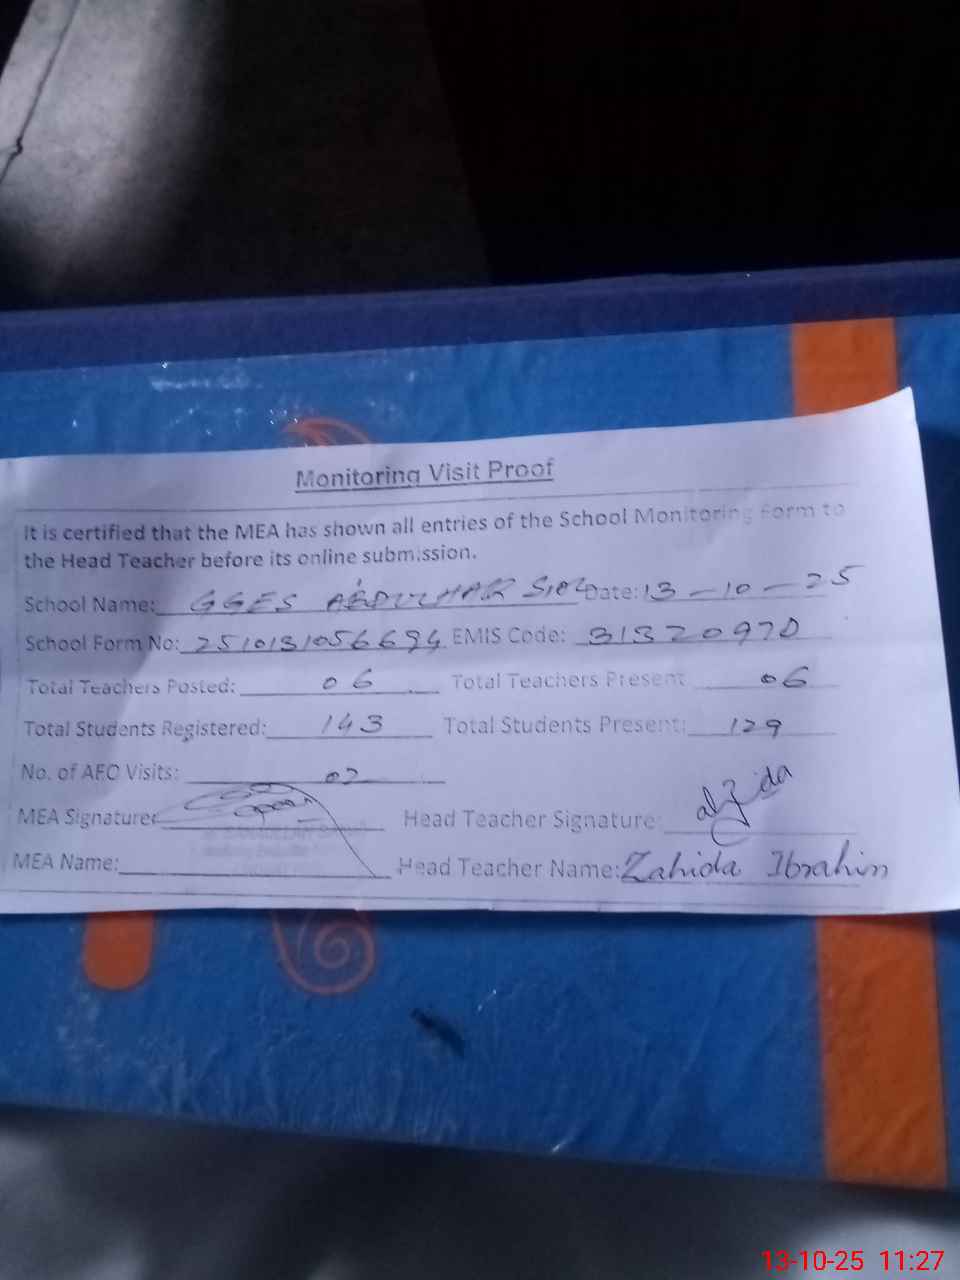 Monitoring Visit Proof
It is certified that the MEA has shown all entries of the School Monitoring Form to
the Head Teacher before its online submission.
School Name: GGES ABDULHAR SIAL Date: 13-10-25
School Form No: 2510131056694 EMIS Code: 31320970
Total Teachers Posted: 06 Total Teachers Present 06
Total Students Registered: 143 Total Students Present: 129
No. of AEO Visits: 02
MEA Signature: Head Teacher Signature:
MEA Name: Head Teacher Name: Zahida Ibrahim
13-10-25 11:27